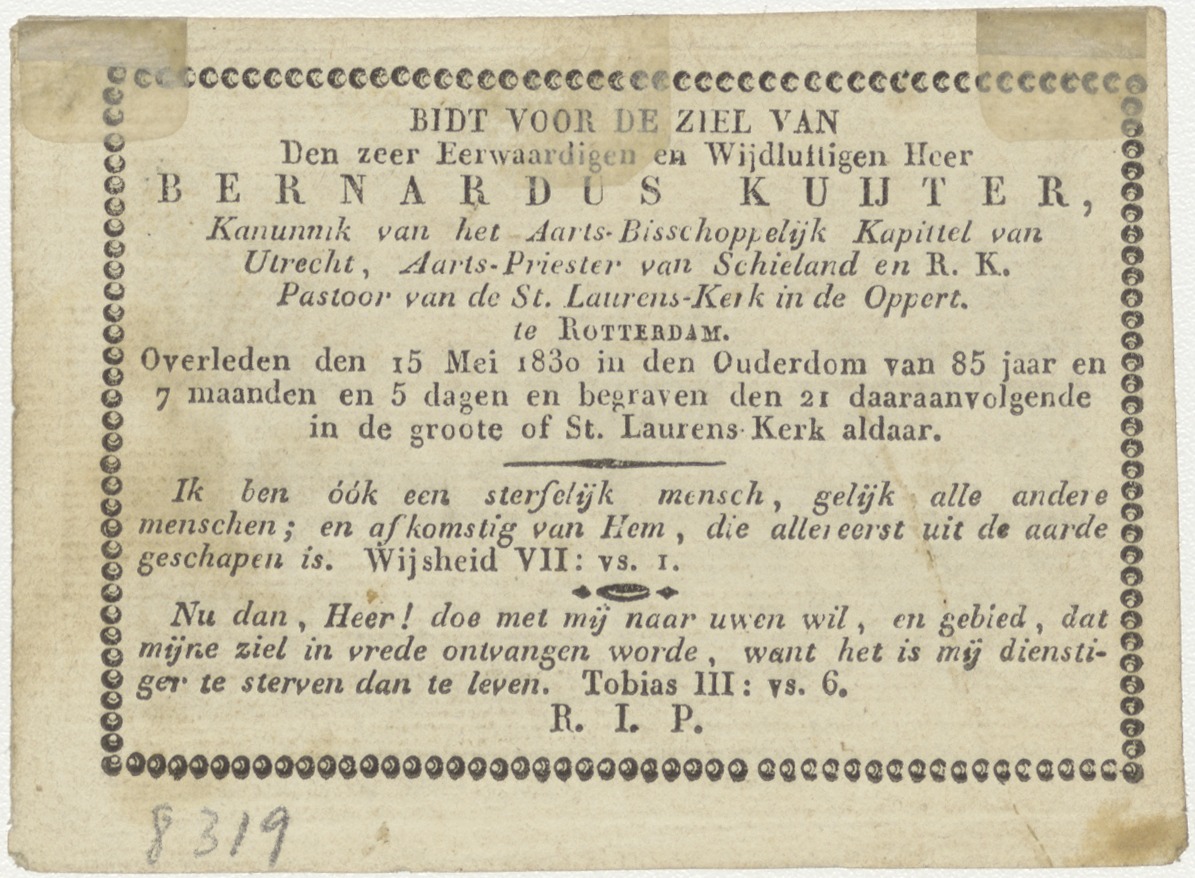 BIDT VOOR DE ZIEL VAN
Den zeer Eerwaardigen en Wijdluftigen Heer
BERNARDUS KUIJTER,
Kanunnik van het Aarts-Bisschoppelijk Kapittel van
Utrecht, Aarts-Priester van Schieland en R. K.
Pastoor van de St. Laurens-Kerk in de Oppert.
te ROTTERDAM.
Overleden den 15 Mei 1830 in den Ouderdom van 85 jaar en
7 maanden en 5 dagen en begraven den 21 daaraanvolgende
in de groote of St. Laurens-Kerk aldaar.
Ik ben óók een sterfelijk mensch, gelijk alle andere
menschen; en afkomstig van Hem, die allereerst uit de aarde
geschapen is. Wijsheid VII: vs. 1.
Nu dan, Heer! doe met mij naar uwen wil, en gebied, dat
mijne ziel in vrede ontvangen worde, want het is mij diensti-
ger te sterven dan te leven. Tobias III: vs. 6.
R. I. P.
8319